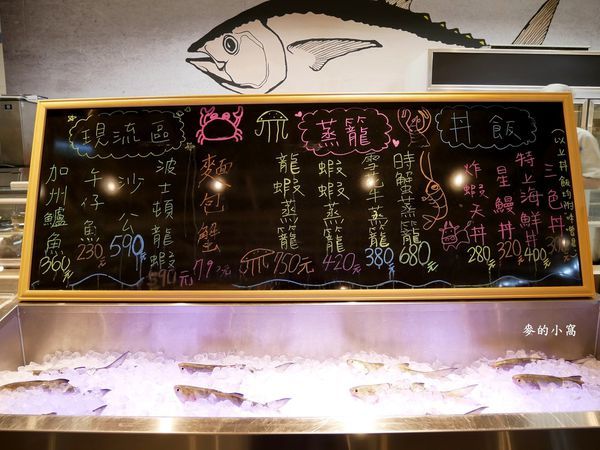 丼飯
(以上丼飯均附味噌湯)
三色丼
特上海鮮丼 400元
星鰻丼 320元
炸蝦天丼 280元
蒸籠
時蟹蒸籠 680元
雪花牛蒸籠 380元
蝦蝦蒸籠 420元
龍蝦蒸籠 750元
現流區
麵包蟹
波士頓龍蝦 590元
沙公 590元
午仔魚 230元
加州鱸魚 360元
麥的小窩